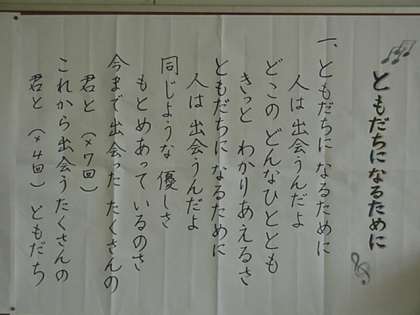 ともだちになるために
一、ともだちに なるために
人は 出会うんだよ
どこの どんなひととも
きっと わかりあえるさ
ともだちに なるために
人は 出会うんだよ
同じような 優しさ
もとめあって いるのさ
今まで 出会った たくさんの
君と (×7回)
これから 出会う たくさんの
君と (×4回) ともだち